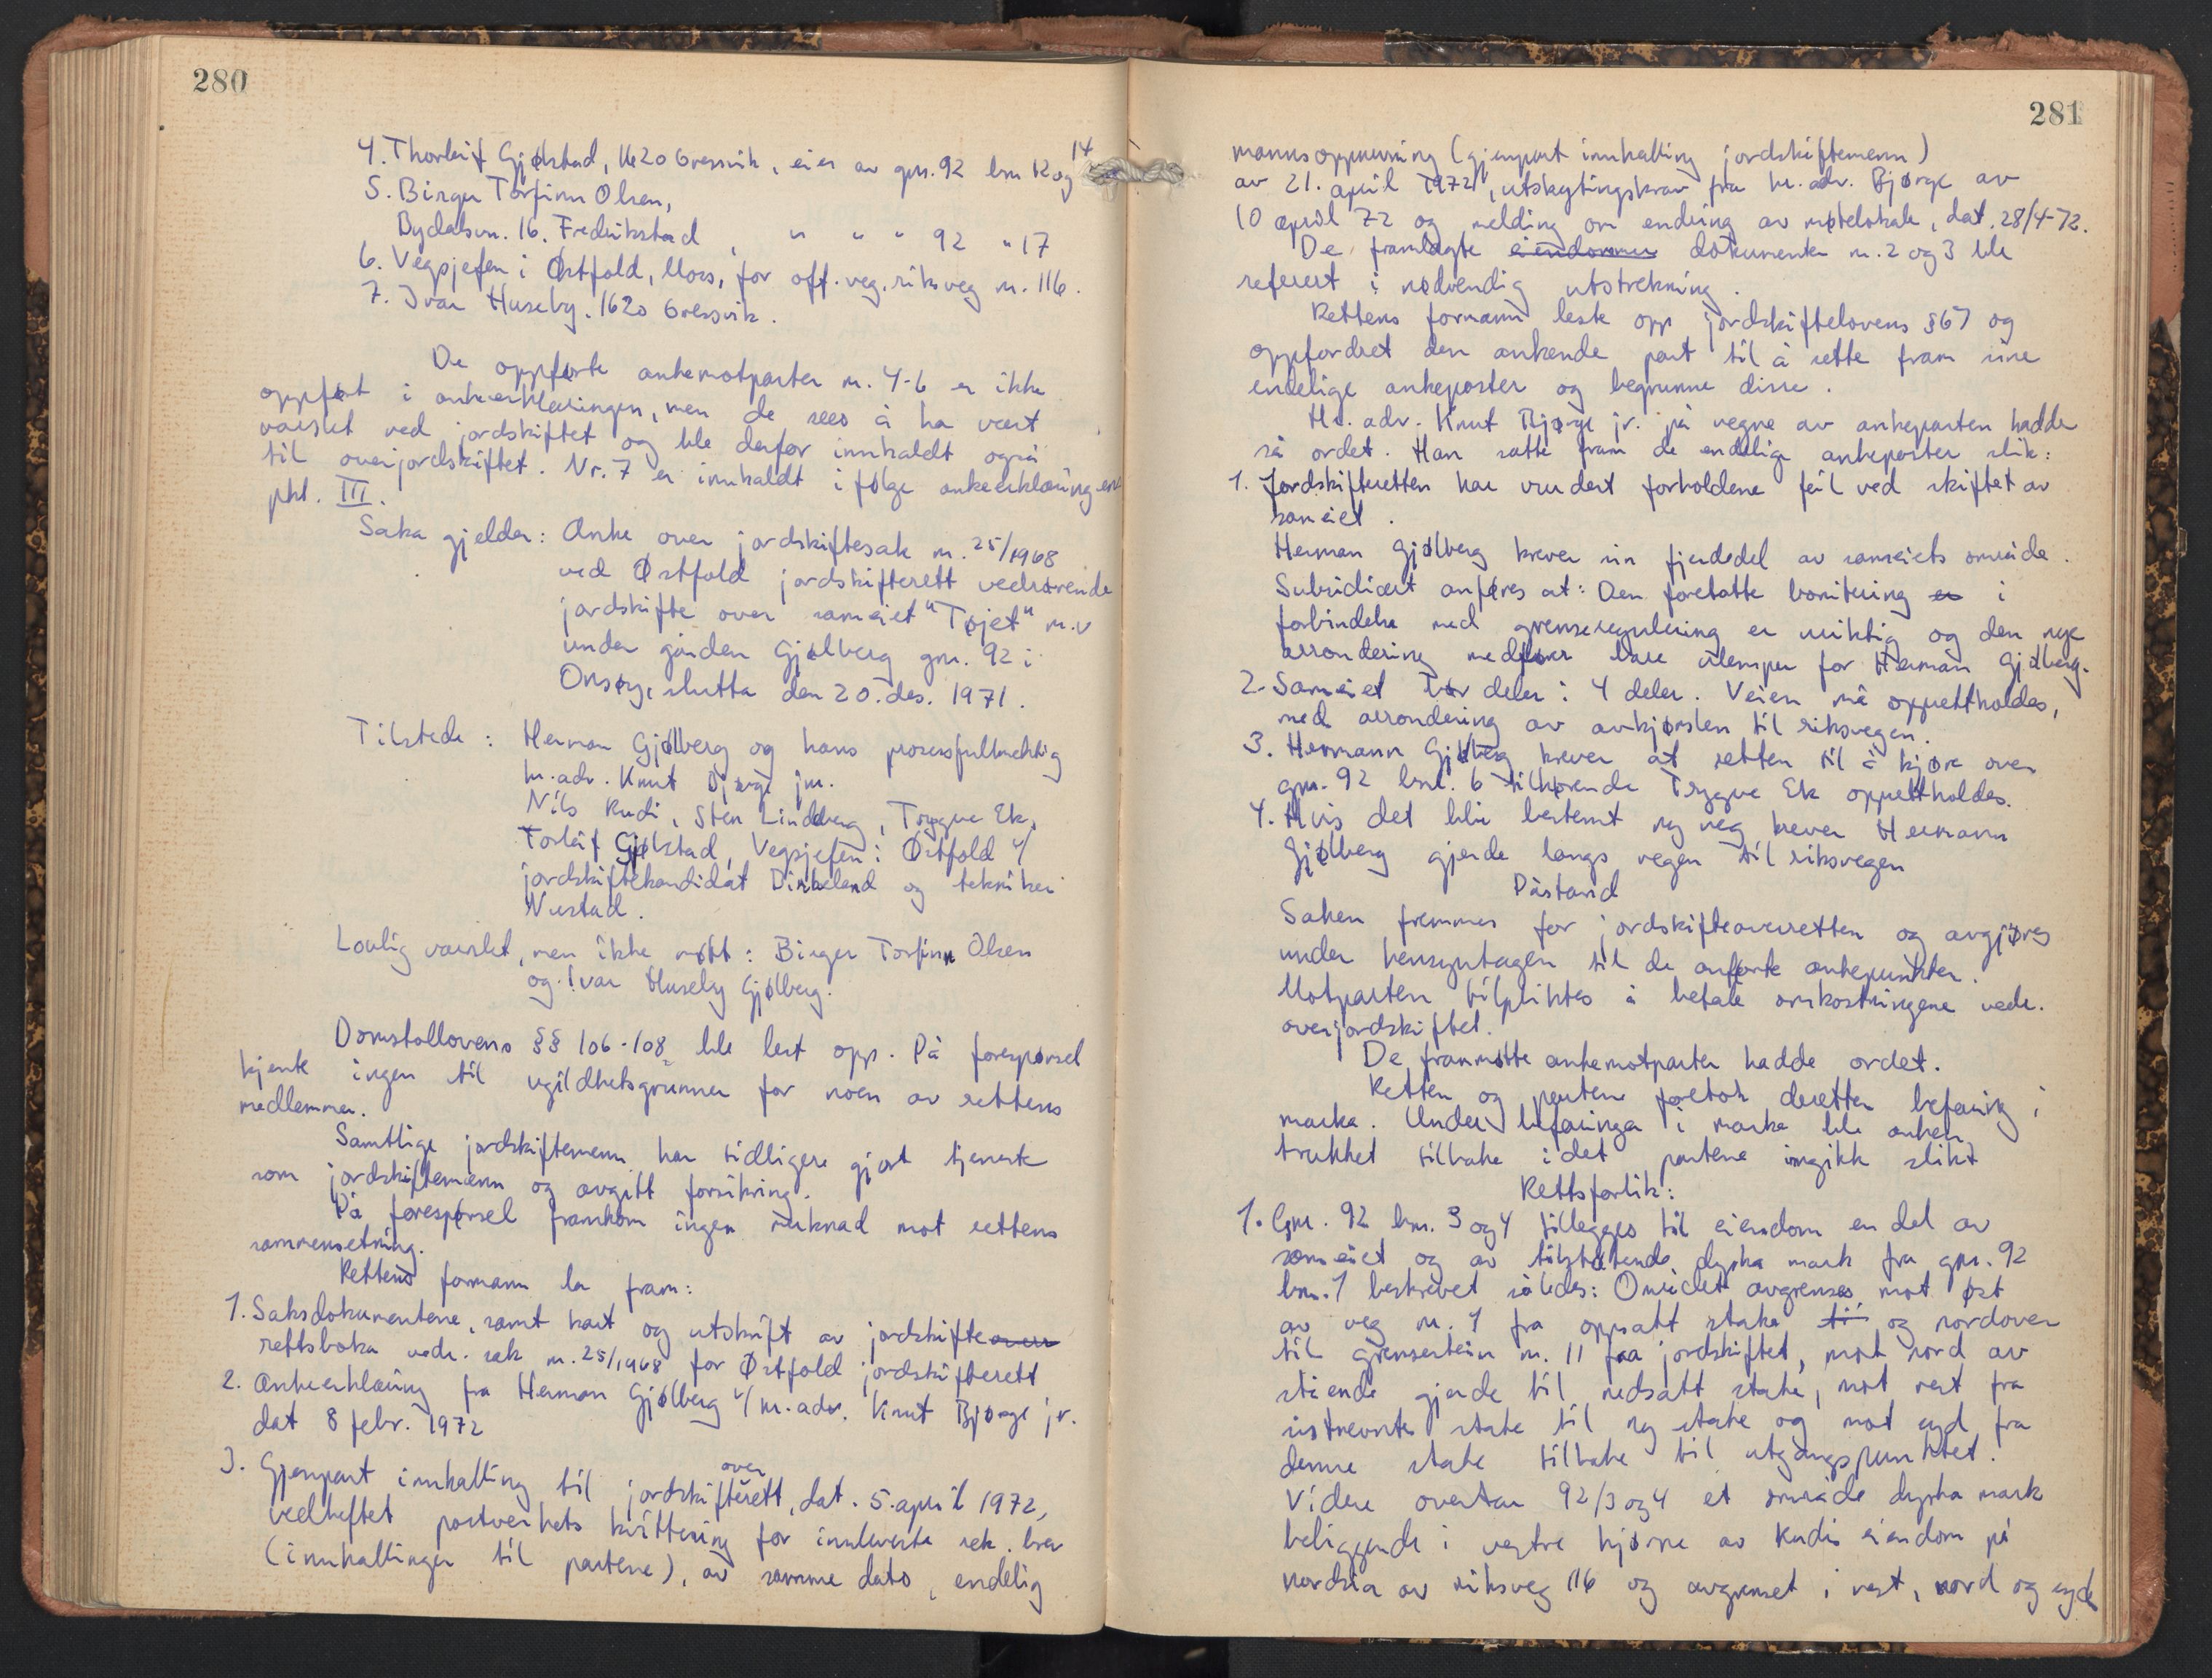 280
4. Thorleif Gjølstad, 1620 Gressvik, eier av gnr. 92 bnr. 12 og 14
5. Birger Torfinn Olsen,
Bydalsvn. 16. Fredrikstad, " " " 92 " 17
6. Vegsjefen i Østfold, Moss, for off. veg. riksveg nr. 116.
7. Ivar Huseby. 1620 Gressvik.
De oppførte ankemotparter nr. 4-6 er ikke
oppført i ankeerklæringen, men de sees å ha vært
varslet ved jordskiftet og ble derfor innkaldt også
til overjordskiftet. Nr. 7 er innkaldt i følge ankeerklæringens
pkt. III.
Saka gjelder: Anke over jordskiftesak nr. 25/1968
ved Østfold jordskifterett vedrørende
jordskifte over sameiet "Tøjet" m.v
under gården Gjølberg gnr. 92 i
Onsøy, slutta den 20. des. 1971.
Tilstede: Herman Gjølberg og hans prosessfullmektig
hr. adv. Knut Bjørge jnr.
Nils Rudi, Sten Lindberg, Trygve Ek,
Torleif Gjølstad, Vegsjefen i Østfold v/
jordskiftekandidat Birkeland og tekniker
Nustad.
Lovlig varslet, men ikke møtt: Birger Torfinn Olsen
og Ivar Huseby Gjølberg.
Domstollovens §§ 106-108 ble lest opp. På forespørsel
kjente ingen til ugildhetsgrunner for noen av rettens
medlemmer.
Samtlige jordskiftemenn har tidligere gjort tjeneste
som jordskiftemenn og avgitt forsikring.
På forespørsel framkom ingen merknad mot rettens
sammensetning.
Rettens formann la fram:
1. Saksdokumentene, samt kart og utskrift av jordskifteover
rettsboka vedr. sak nr. 25/1968 for Østfold jordskifterett
2. Ankeerklæring fra Herman Gjølberg v/ hr. adv. Knut Bjørge jr.
dat 8 febr. 1972
3. Gjenpart innkalling til jordskifteoverrett, dat. 5. april 1972,
vedheftet postverkets kvittering for innleverte rek. brev
(innkallinger til partene), av samme dato, endelig
281
mannsoppnevning (gjenpart innkalling jordskiftemenn)
av 21. april 1972, utskytingskrav fra hr. adv. Bjørge av
10 april 72 og melding om endring av møtelokale, dat. 28/4-72.
De framlagte eiendommer dokumenter nr. 2 og 3 ble
referert i nødvendig utstrekning.
Rettens formann leste opp jordskiftelovens § 67 og
oppfordret den ankende part til å sette fram sine
endelige ankeposter og begrunne disse.
Hr. adv. Knut Bjørge jr. på vegne av ankeparten hadde
så ordet. Han satte fram de endelige ankeposter slik:
1. Jordskifteretten har vurdert forholdene feil ved skiftet av
sameiet.
Herman Gjølberg krever sin fjerdedel av sameiets område.
Subsidiært anføres at: Den foretatte bonitering er i
forbindelse med grenseregulering er uriktig og den nye
arrondering medfører bare ulemper for Herman Gjølberg.
2. Sameiet bør deles i 4 deler. Veien må opprettholdes,
med arrondering av avkjørslen til riksvegen.
3. Hermann Gjølberg krever at retten til å kjøre over
gnr. 92 bnr. 6 tilhørende Trygve Ek opprettholdes.
4. Hvis det blir bestemt ny veg krever Hermann
Gjølberg gjerde langs vegen til riksvegen
Påstand
Saken fremmes for jordskifteoverretten og avgjøres
under hensyntagen til de anførte ankepunkter.
Motparten tilpliktes å betale omkostningene vedr.
overjordskiftet.
De frammøtte ankemotparter hadde ordet.
Retten og partene foretok deretter befaring i
marka. Under befaringa i marka ble anken
trukket tilbake idet partene inngikk slikt
Rettsforlik:
1. Gnr. 92 bnr. 3 og 4 tillegges til eiendom en del av
sameiet og av tilstøtende dyrka mark fra gnr. 92
bnr. 1 beskrevet således: Området avgrenses mot øst
av veg nr. 1 fra oppsatt stake til og nordover
til grensestein nr. 11 fra jordskiftet, mot nord av
stående gjerde til nedsatt stake, mot vest fra
sistnevnte stake til ny stake og mot syd fra
denne stake tilbake til utgangspunktet.
Videre overtar 92/3 og 4 et område dyrka mark
beliggende i vestre hjørne av Rudis eiendom på
nordsia av riksveg 116 og avgrenset i vest, nord og syd